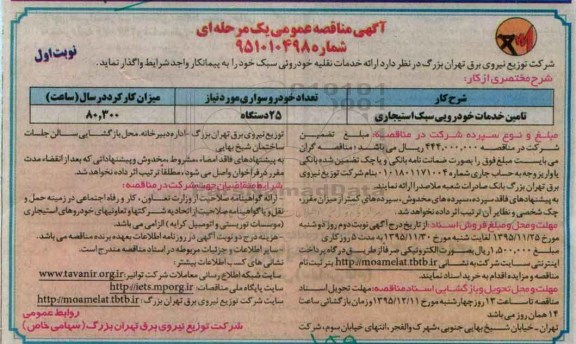 آگهی مناقصه عمومی یک مرحله ای
شماره ۹۵۱۰۱۰۴۹۸
نوبت اول
شرکت توزیع نیروی برق تهران بزرگ در نظر دارد ارائه خدمات نقلیه خودروئی سبک خود را به پیمانکار واجد شرایط واگذار نماید.
شرح مختصری از کار:
شرح کار
تعداد خودرو سواری مورد نیاز
میزان کارکرد در سال (ساعت)
تامین خدمات خودرویی سبک استیجاری
۲۵ دستگاه
۸۰,۳۰۰
مبلغ و نوع سپرده شرکت در مناقصه: مبلغ تضمین
شرکت در مناقصه ۴۴۲,۰۰۰,۰۰۰ ریال می باشد؛ مناقصه گران
می بایست مبلغ فوق را بصورت ضمانت نامه بانکی و یا چک تضمین شده بانکی
و یا واریز وجه به حساب جاری شماره ۰۱۰۱۸۰۱۱۷۱۰۰۴ بنام شرکت توزیع نیروی
برق تهران بزرگ بانک صادرات شعبه ملاصدرا ارائه نمایند.
به پیشنهادهای فاقد سپرده، سپرده های مخدوش، سپرده های کمتر از میزان مقرر،
چک شخصی و نظایر آن ترتیب اثر داده نخواهد شد.
مهلت و محل و مبلغ فروش اسناد: از تاریخ درج آگهی نوبت دوم روز دوشنبه
مورخ ۱۳۹۵/۱۱/۲۵ لغایت شنبه مورخ ۱۳۹۵/۱۱/۳۰ به مدت ۵ روز کاری
مبلغ ۱,۵۰۰,۰۰۰ ریال بصورت الکترونیکی صرفا از طریق درگاه پرداخت
اینترنتی سایت شرکت به نشانی http://moamelat.tbtb.ir بنر ثبت نام
مناقصه و مزایده اقدام به خرید اسناد نمایند.
مهلت و محل تحویل و بازگشایی اسناد مناقصه: مهلت تحویل اسناد
مناقصه تا ساعت ۱۳ روز چهارشنبه مورخ ۱۳۹۵/۱۲/۱۱ و زمان بازگشائی ساعت
۱۴ همان روز می باشد
تهران - خیابان شیخ بهایی جنوبی، شهرک والفجر، انتهای خیابان سوم، شرکت
توزیع نیروی برق تهران بزرگ - اداره دبیرخانه. محل بازگشایی سالن جلسات
ساختمان شیخ بهایی
به پیشنهادهای فاقد امضاء، مشروط، مخدوش و پیشنهاداتی که بعد از انقضاء مدت
مقرر در فراخوان واصل می شود، مطلقا ترتیب اثر داده نخواهد شد.
شرایط متقاضیان جهت شرکت در مناقصه:
ارائه گواهینامه صلاحیت از وزارت تعاون، کار و رفاه اجتماعی در زمینه حمل و
نقل و یا گواهینامه صلاحیت از اتحادیه شرکتها و تعاونیهای خودروهای استیجاری
(موسسات توریستی و اتومبیل کرایه) الزامی می باشد.
- هزینه درج دو نوبت آگهی در روزنامه اطلاعات بعهده برنده مناقصه می باشد.
- سایر اطلاعات و جزئیات مربوطه در اسناد مناقصه مندرج است.
نشانی های کسب اطلاعات بیشتر:
سایت شبکه اطلاع رسانی معاملات شرکت توانیر: www.tavanir.org.ir
سایت پایگاه ملی مناقصات: http://iets.mporg.ir
سایت شرکت توزیع نیروی برق تهران بزرگ: http://moamelat.tbtb.ir
روابط عمومی
شرکت توزیع نیروی برق تهران بزرگ (سهامی خاص)